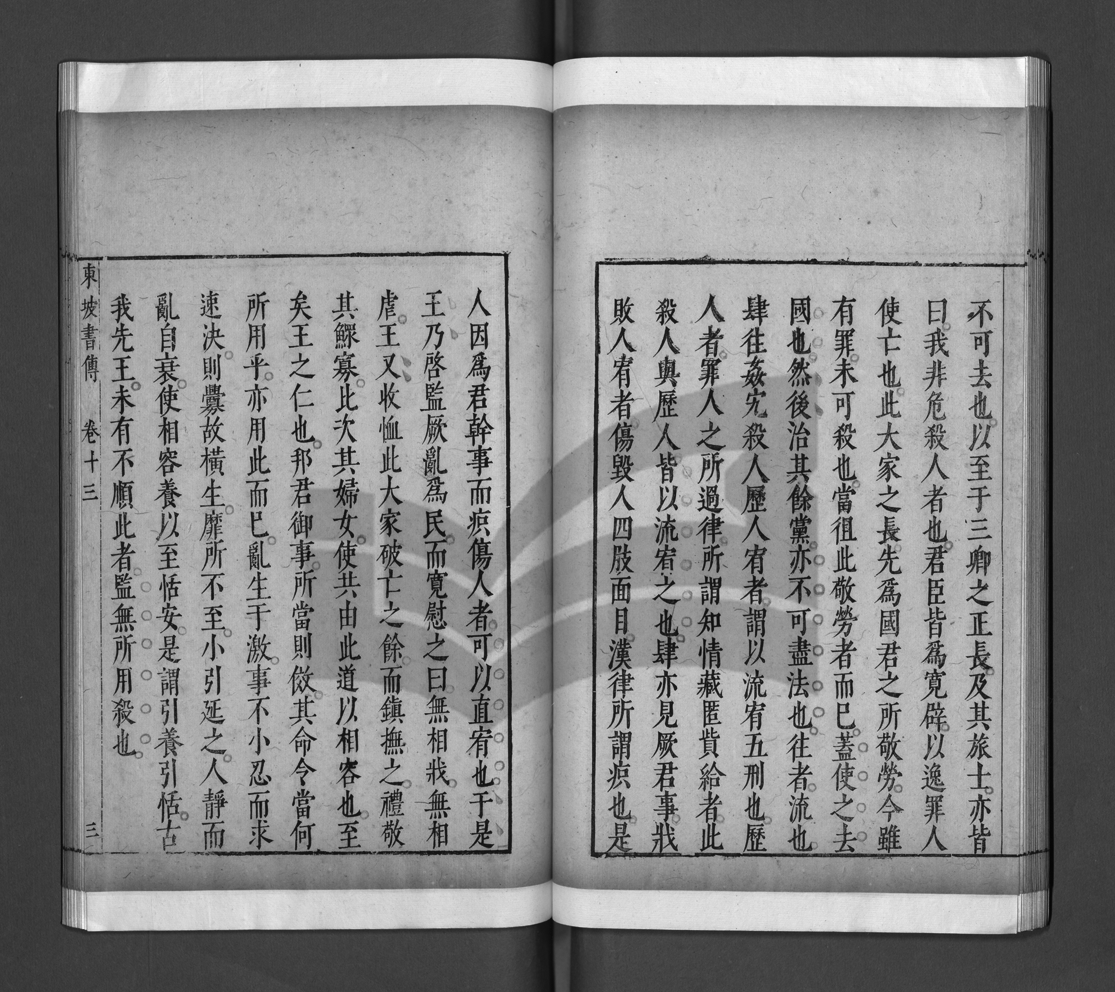 不可去也以至于三卿之正長及其旅士亦皆
曰我非危殺人者也君臣皆爲寬辟以逸罪人
使亡也此大家之長先爲國君之所敬勞今雖
有罪未可殺也當徂此敬勞者而已蓋使之去
國也然後治其餘黨亦不可盡法也往者流也
肆往姦宄殺人歷人宥者謂以流宥五刑也歷
人者罪人之所過律所謂知情藏匿貲給者此
殺人與歷人皆以流宥之也肆亦見厥君事戕
敗人宥者傷毀人四肢面目漢律所謂疻也是
人因爲君幹事而疻傷人者可以直宥也于是
王乃啓監厥亂爲民而寬慰之曰無相戕無相
虐王又收恤此大家破亡之餘而鎮撫之禮敬
其鰥寡此次其婦女使共由此道以相容也至
矣王之仁也邦君御事所當則傚其命令當何
所用乎亦用此而已亂生于激事不小忍而求
速決則釁故橫生靡所不至小引延之人靜而
亂自衰使相容養以至恬安是謂引養引恬古
我先王未有不順此者監無所用殺也
東坡書傳 卷十三 三